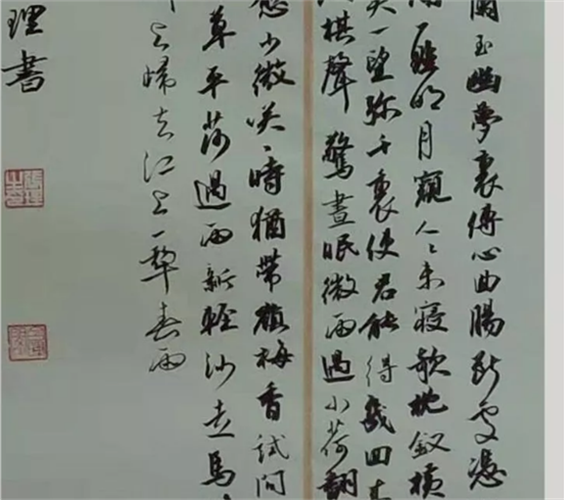 玉幽夢裏傳心曲腸斷處憑
一點明月窺人人未寢欹枕釵橫
美一望彌千裏使君能得幾回來
棋聲驚晝眠微雨過小荷翻
應少微笑笑時猶帶嶺梅香試問
草平莎過雨新輕沙走馬
歸去江上一犁春雨
理書